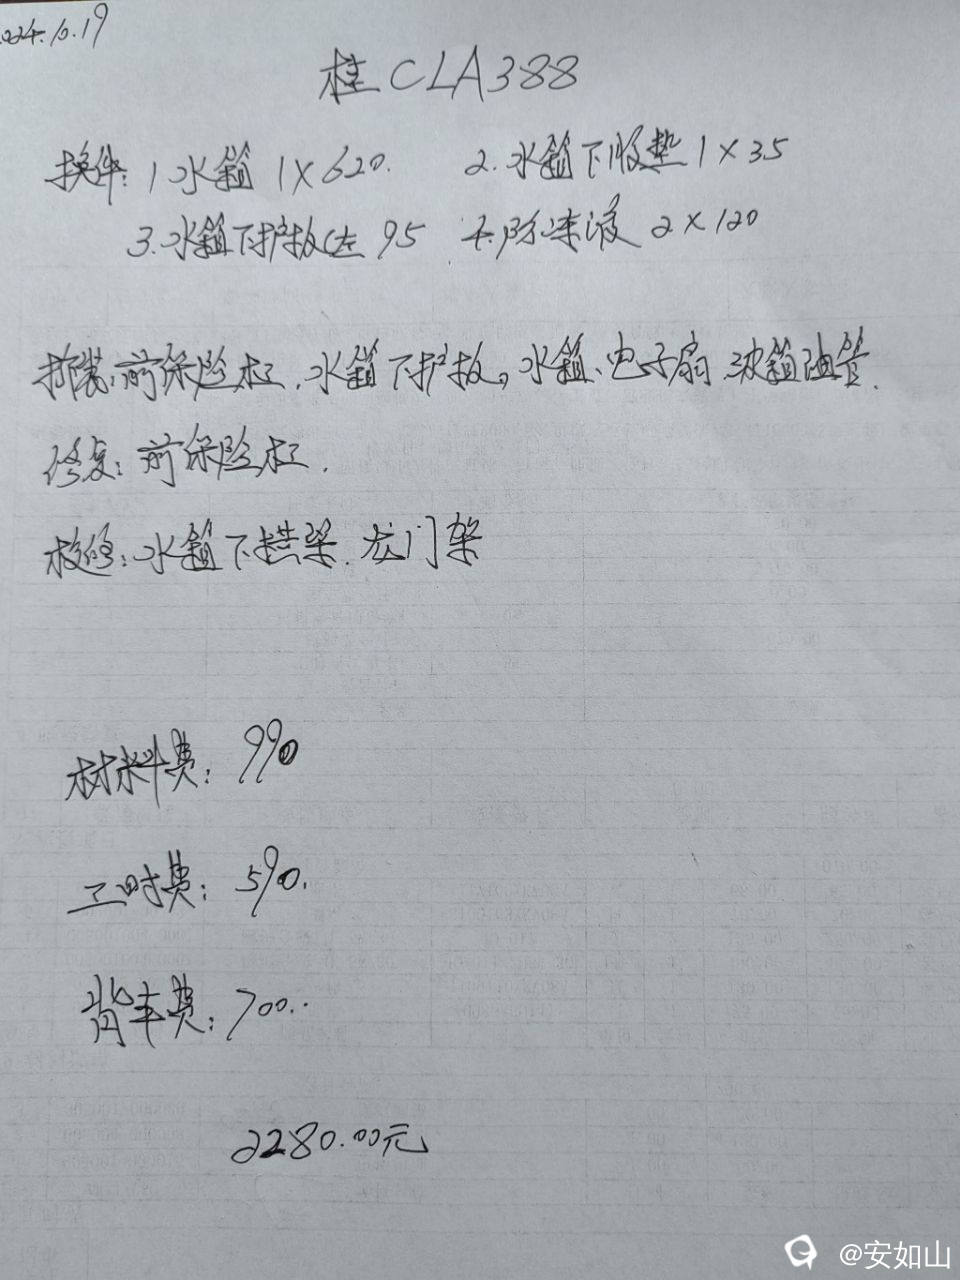 2024.10.19
桂CLA388
换件: 1水箱 1×620. 2.水箱下胶垫 1×35
3.水箱下护板左 95 4.防冻液 2×120
拆装: 前保险杠. 水箱下护板, 水箱、电子扇 波箱油管.
修复: 前保险杠.
校修: 水箱下横梁. 龙门架
材料费: 990
工时费: 590.
背车费: 700..
2280.00元
@安如山